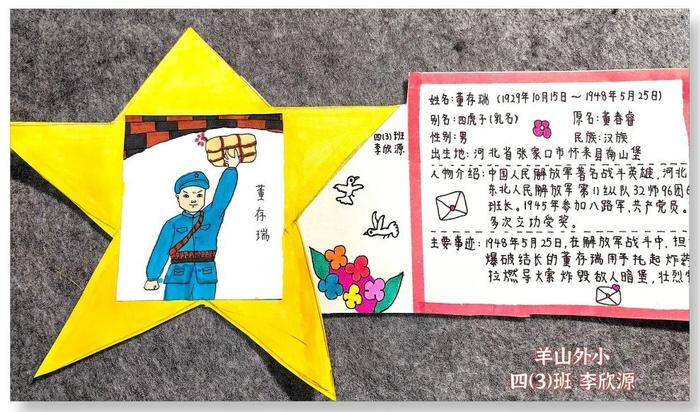 董存瑞
四(3)班
李欣源
姓名:董存瑞 (1929年10月15日～1948年5月25日)
别名:四虎子(乳名) 原名:董春睿
性别:男 民族:汉族
出生地:河北省张家口市怀来县南山堡
人物介绍:中国人民解放军著名战斗英雄,河北
东北人民解放军第11纵队32师96团6
班长。1945年参加八路军,共产党员。
多次立功受奖。
主要事迹:1948年5月25日,在解放军战斗中,担
爆破结长的董存瑞用手托起炸药
拉燃导火索炸毁敌人暗堡,壮烈牺
羊山外小
四(3)班 李欣源